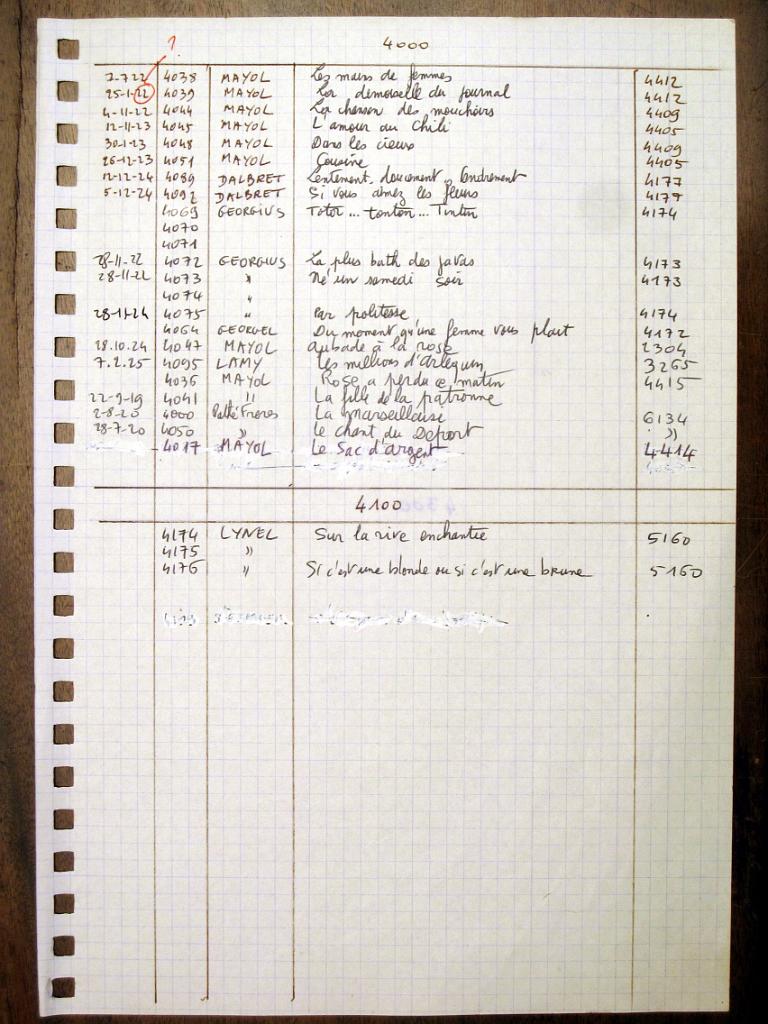 ?
4000
2-7-22 4038 MAYOL Les mains de femmes 4412
25-1-22 4039 MAYOL La demoiselle du journal 4412
4-11-22 4044 MAYOL La chanson des mouchoirs 4409
12-11-23 4045 MAYOL L'amour au Chili 4405
30-1-23 4048 MAYOL Dans les cieux 4409
26-12-23 4051 MAYOL Cousine 4405
12-12-24 4089 DALBRET Lentement, doucement, tendrement 4177
5-12-24 4092 DALBRET Si vous aimez les fleurs 4177
4069 GEORGIUS Totor... tonton... Tintin 4174
4070
4071
28-11-22 4072 GEORGIUS La plus bath des javas 4173
28-11-22 4073 " Né un samedi soir 4173
4074 "
28-11-24 4075 " Par politesse 4174
4064 GEORGEL Du moment qu'une femme vous plait 4172
28.10.24 4047 MAYOL Aubade à la rose 2304
7.2.25 4095 LAMY Les millions d'arlequin 3265
4036 MAYOL Rose a perdu ce matin 4415
22-9-19 4041 " La fille de la patronne
2-8-20 4000 Pathé Frères La Marseillaise 6134
28-7-20 4050 " Le chant du Départ "
4017 MAYOL Le Sac d'argent 4414
4100
4174 LYNEL Sur la rive enchantée 5160
4175 "
4176 " Si c'est une blonde ou si c'est une brune 5160